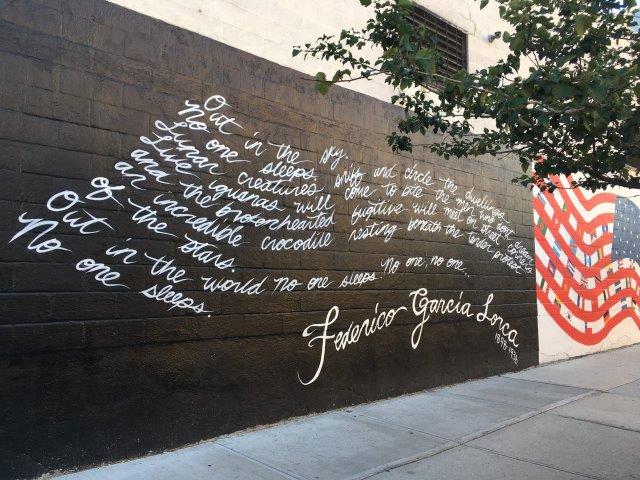 Out in the sky.
No one sleeps.
Lunar creatures sniff and circle the dwellings.
Live iguanas will come to bite the men who don't dream
and the brokenhearted fugitive will meet on street corners
an incredible crocodile resting beneath the tender protest
of the stars.
Out in the world no one sleeps. No one, no one...
No one sleeps.
Federico García Lorca
1898-1936